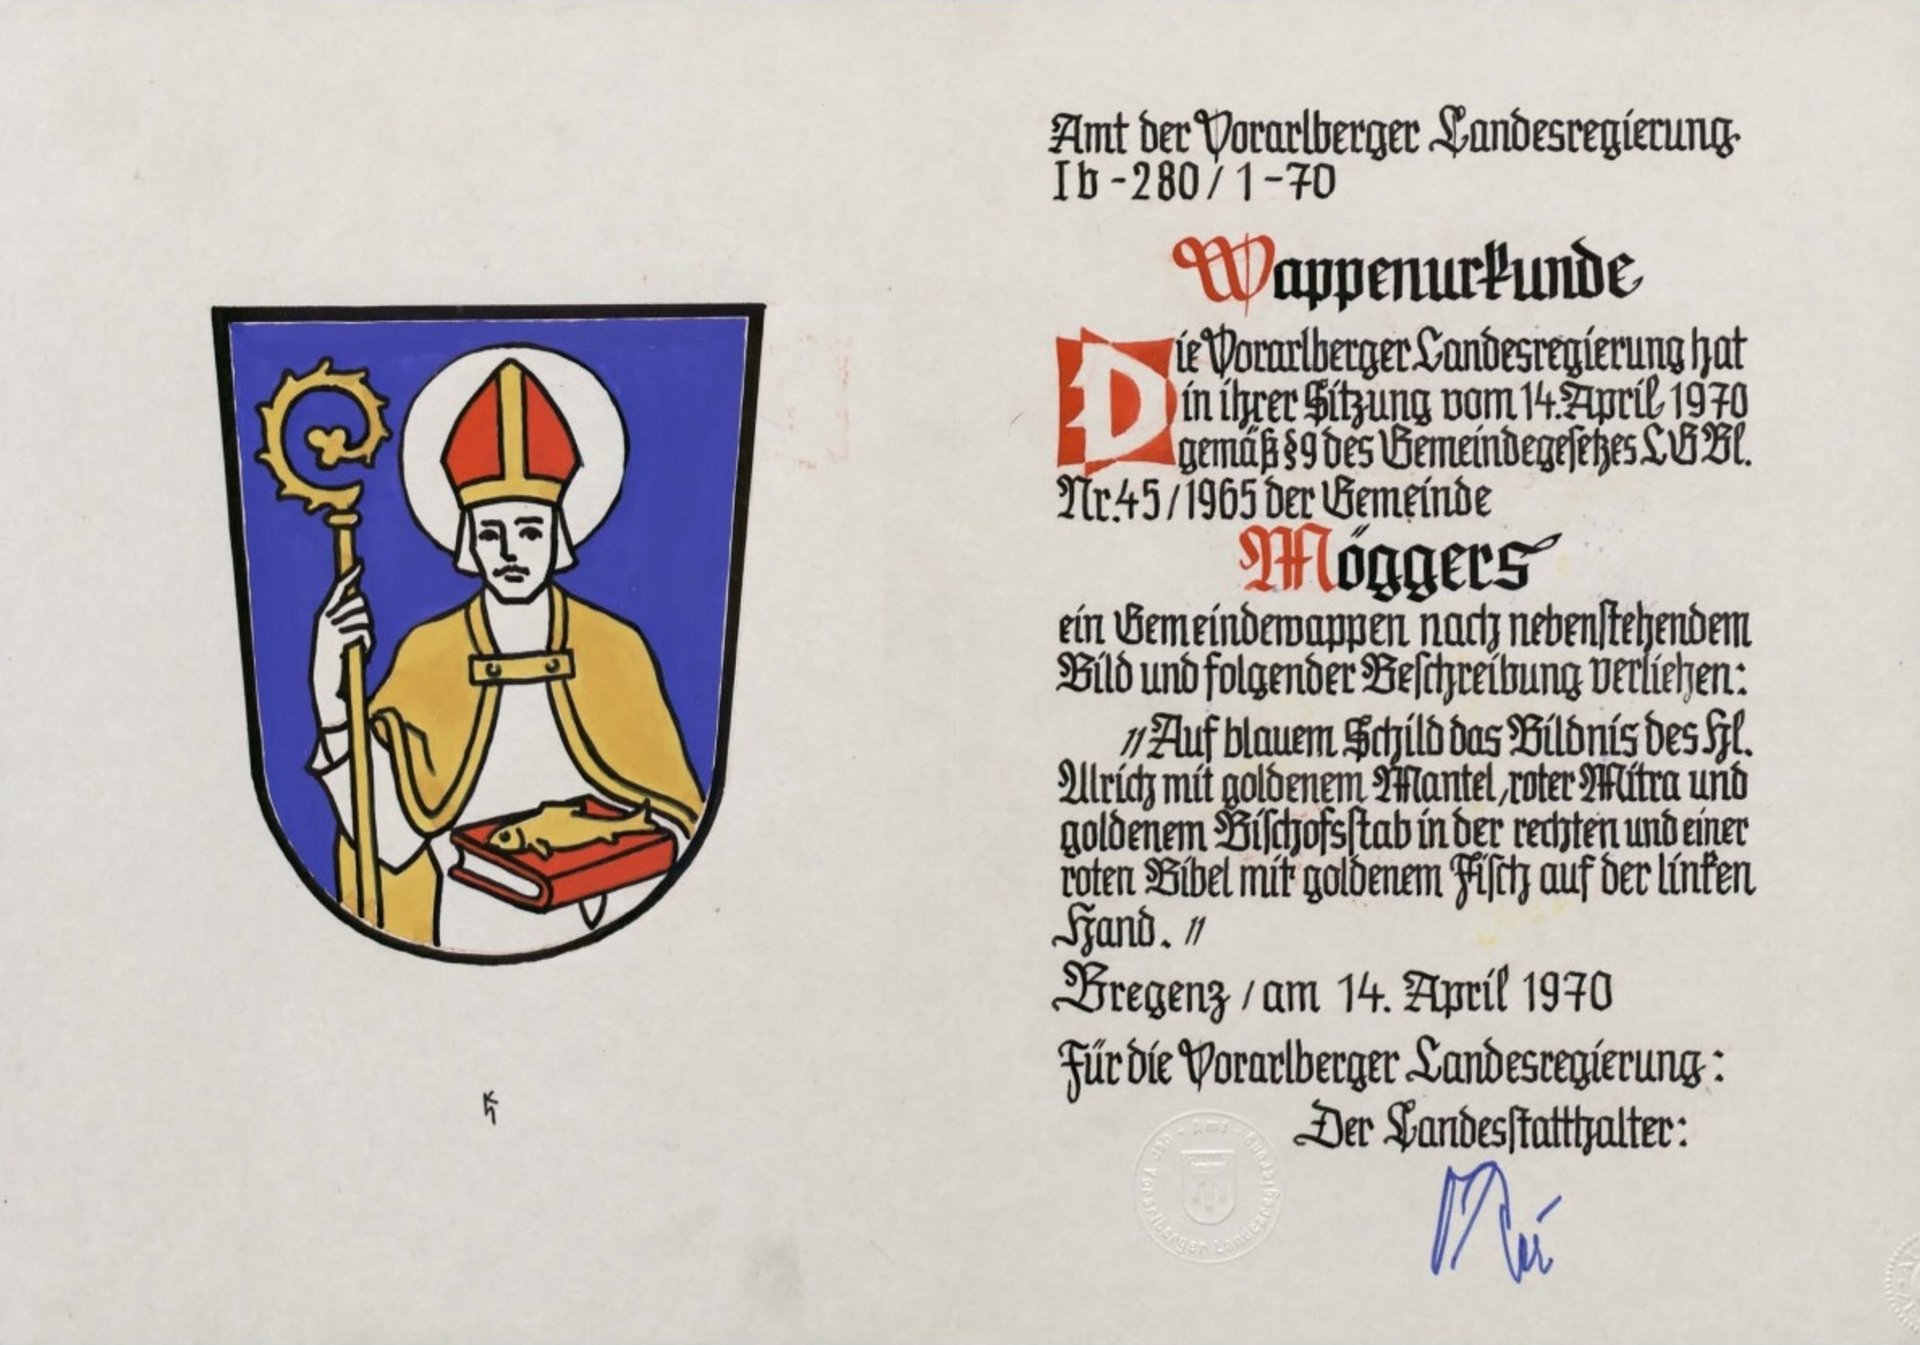 Amt der Vorarlberger Landesregierung
Ib - 280 / 1 - 70
Wappenurkunde
Die Vorarlberger Landesregierung hat
in ihrer Sitzung vom 14. April 1970
gemäß § 9 des Gemeindegesetzes LGBl.
Nr. 45 / 1965 der Gemeinde
Möggers
ein Gemeindewappen nach nebenstehendem
Bild und folgender Beschreibung verliehen:
„Auf blauem Schild das Bildnis des Hl.
Ulrich mit goldenem Mantel, roter Mitra und
goldenem Bischofsstab in der rechten und einer
roten Bibel mit goldenem Fisch auf der linken
Hand.“
Bregenz, am 14. April 1970
Für die Vorarlberger Landesregierung:
Der Landesstatthalter:
Amt der Vorarlberger Landesregierung